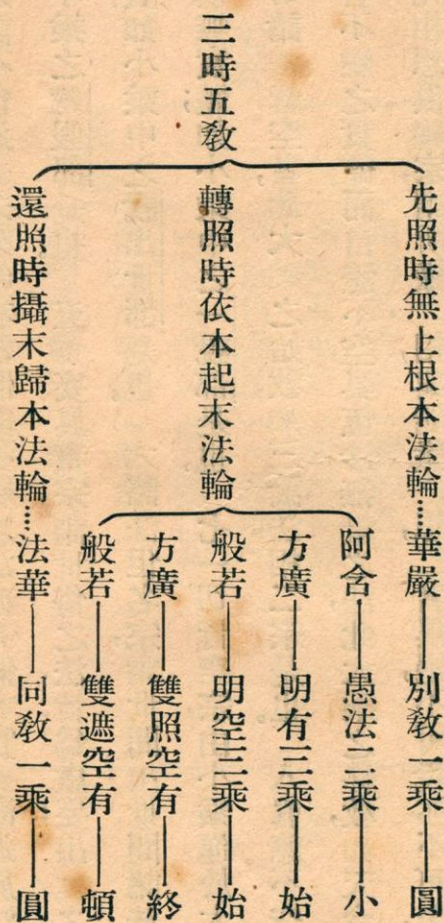 三時五教
先照時無上根本法輪……華嚴——別教一乘——圓
轉照時依本起末法輪
阿含——愚法二乘——小
方廣——明有三乘——始
般若——明空三乘——始
方廣——雙照空有——終
般若——雙遮空有——頓
還照時攝末歸本法輪……法華——同教一乘——圓